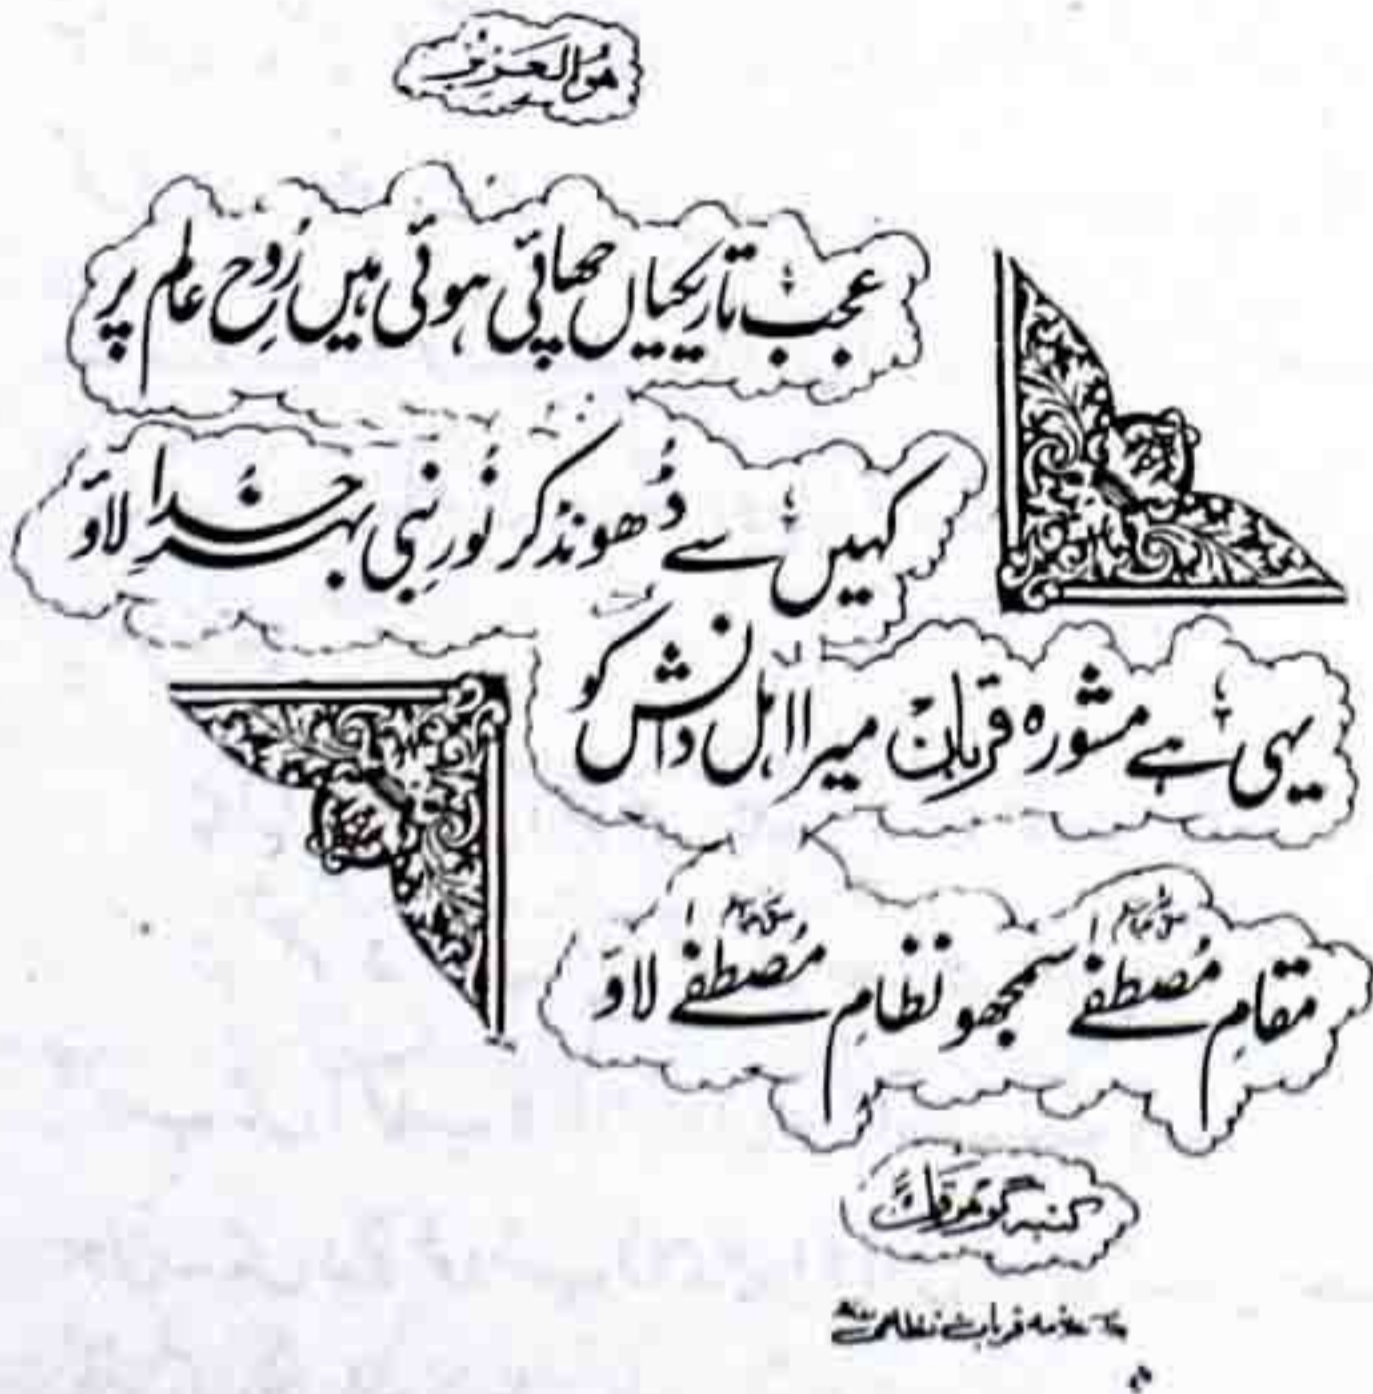 ھوالعزیز
عجب تاریکیاں چھائی ہوئی ہیں رُوحِ عالم پر
کہیں سے ڈھونڈ کر نُورِ نبی بہرِ خُدا لاؤ
یہی ہے مشورہ قربان میرا اہلِ دانش کو
مقامِ مُصطفےٰ سمجھو نظامِ مُصطفےٰ لاؤ
علامہ قربان نظامی